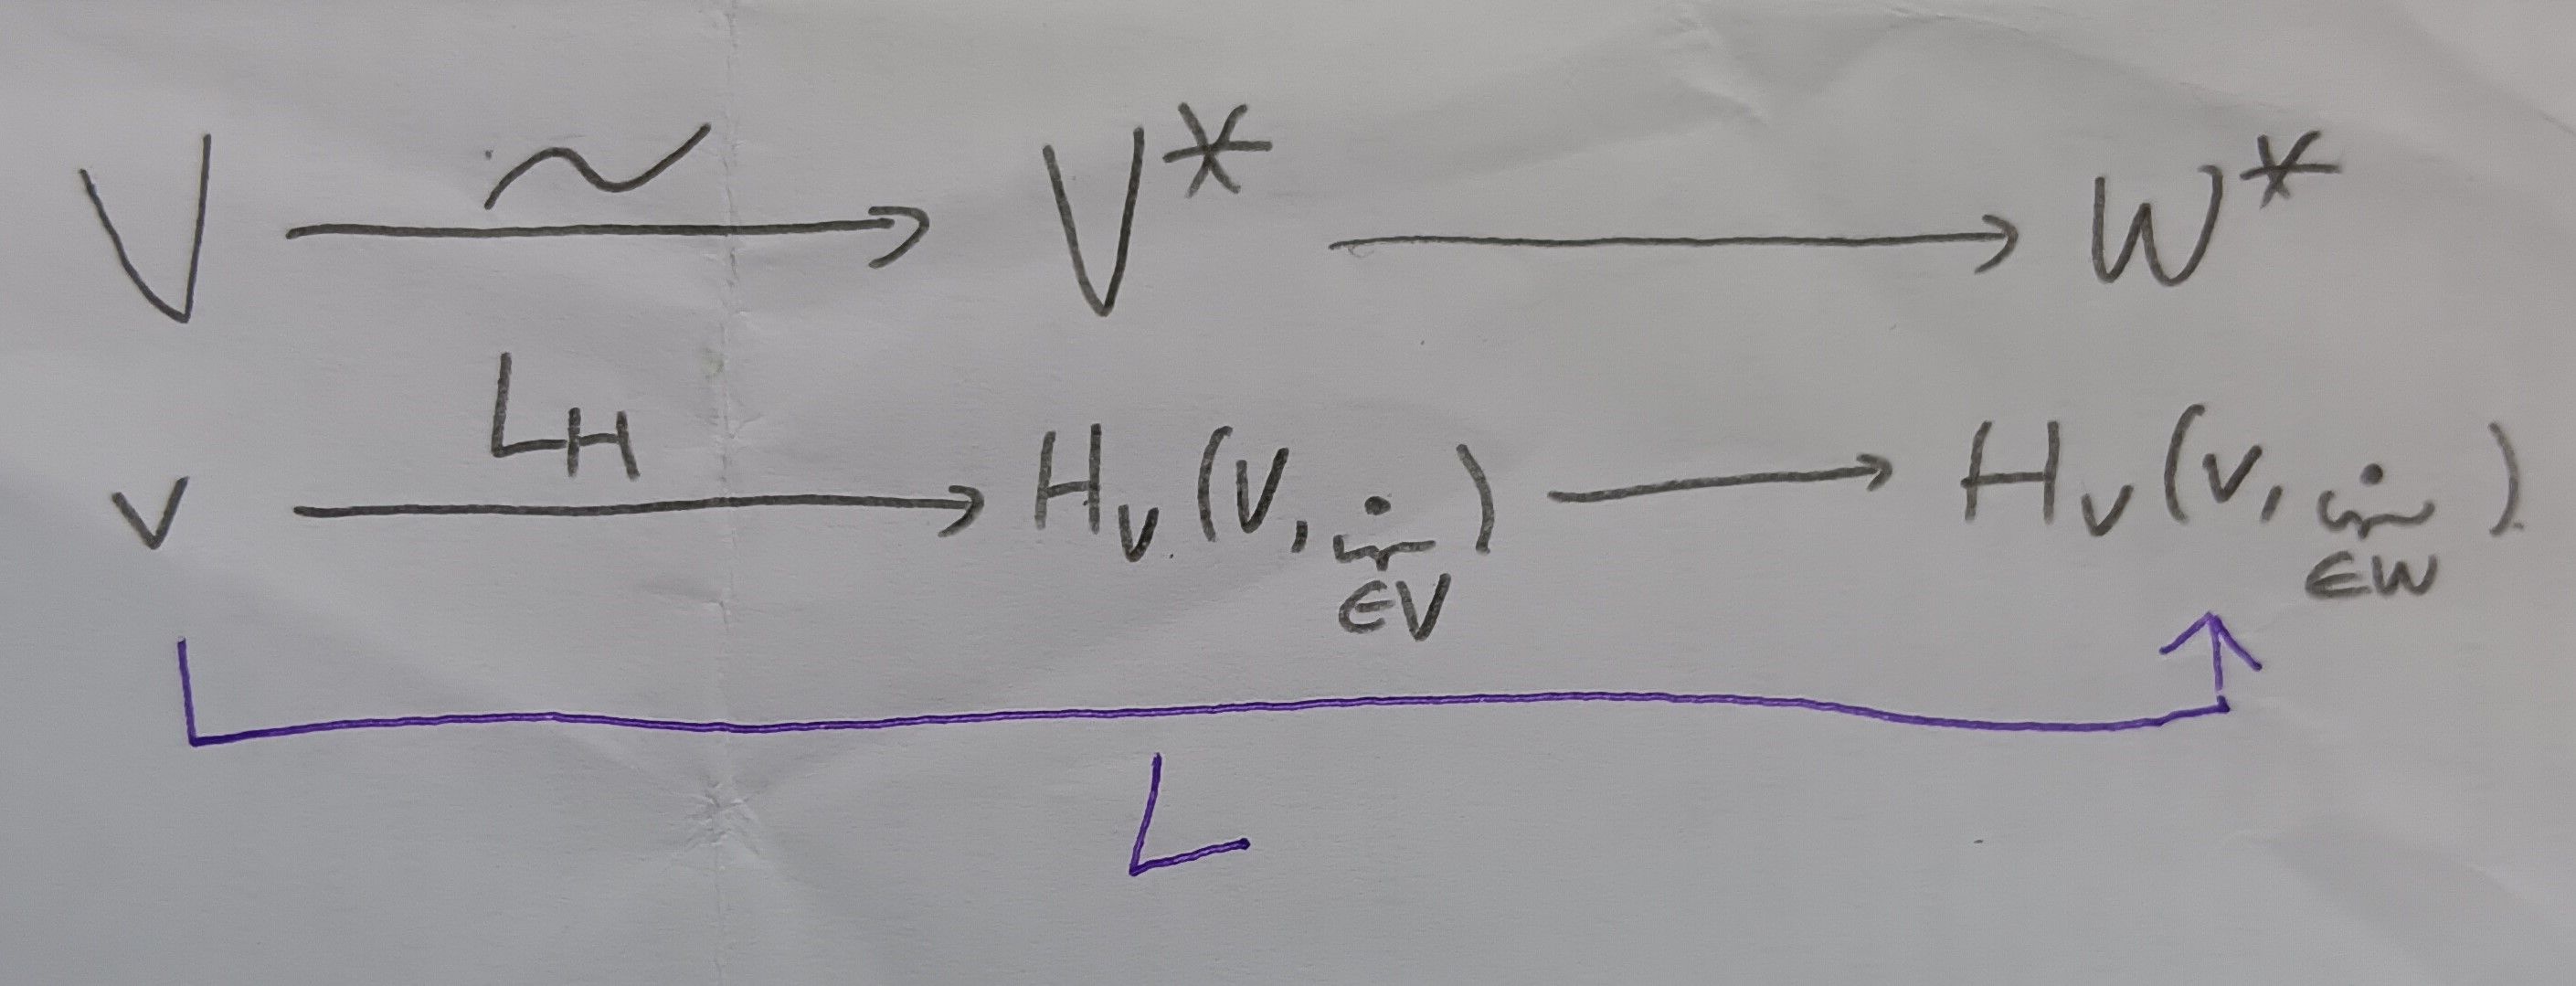 V ~ V* W*
v L_H H_V(v, ·) H_V(v, ·)
∈V ∈W
L